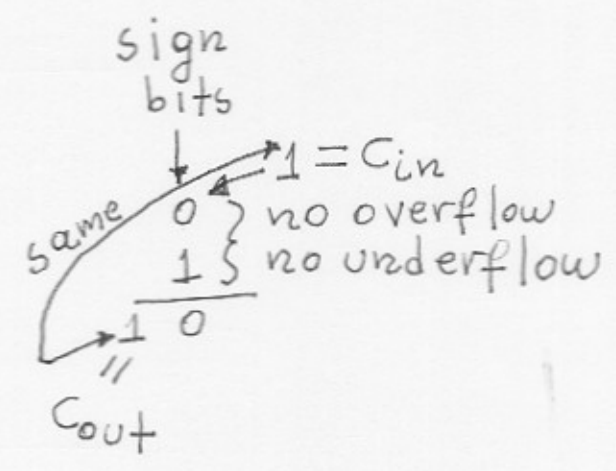 sign
bits
1 = Cin
same
0 } no overflow
1 } no underflow
1 0
Cout